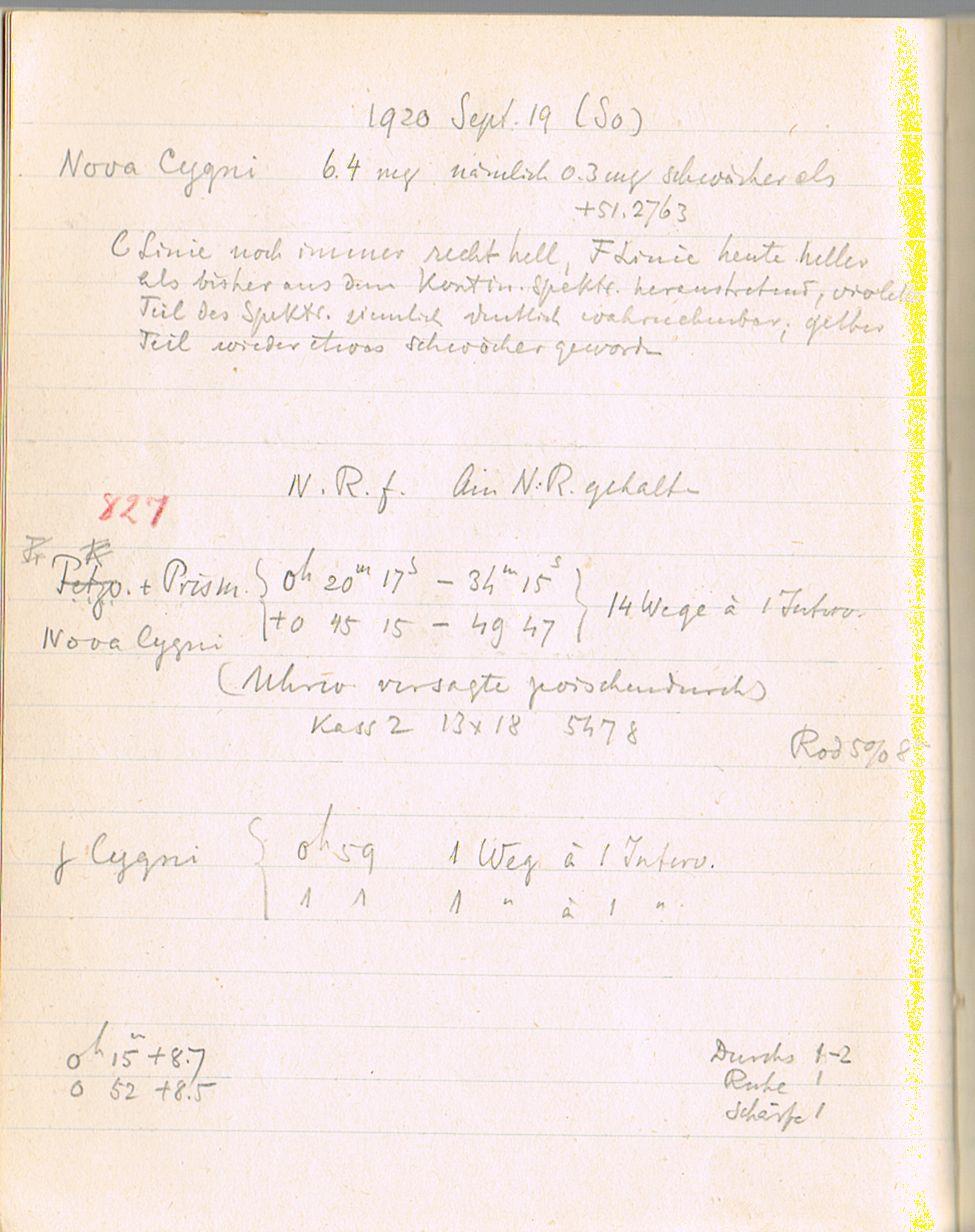 1920 Sept. 19 (So)
Nova Cygni 6.4 mg nämlich 0.3 mg schwächer als
+51.2763
C Linie noch immer recht hell, F Linie heute heller
als bisher aus dem Kontin. Spektr. heraustretend, violett
Teil des Spektr. ziemlich deutlich wahrnehmbar; gelber
Teil wieder etwas schwächer geworden
N. R. f. Am N. R. gehalten
827
Petzv. + Prism. { 0h 20m 17s – 34m 15s } 14 Wege à 1 Interv.
Nova Cygni +0 45 15 – 49 47
(Uhrw versagte zwischendurch)
Kass 2 13x18 5478
Rod 5% 8
γ Cygni { 0h 59 1 Weg à 1 Interv.
1 1 1 " à 1 "
0h 15m +8.7
0 52 +8.5
Durchs 1-2
Ruhe 1
Schärfe 1